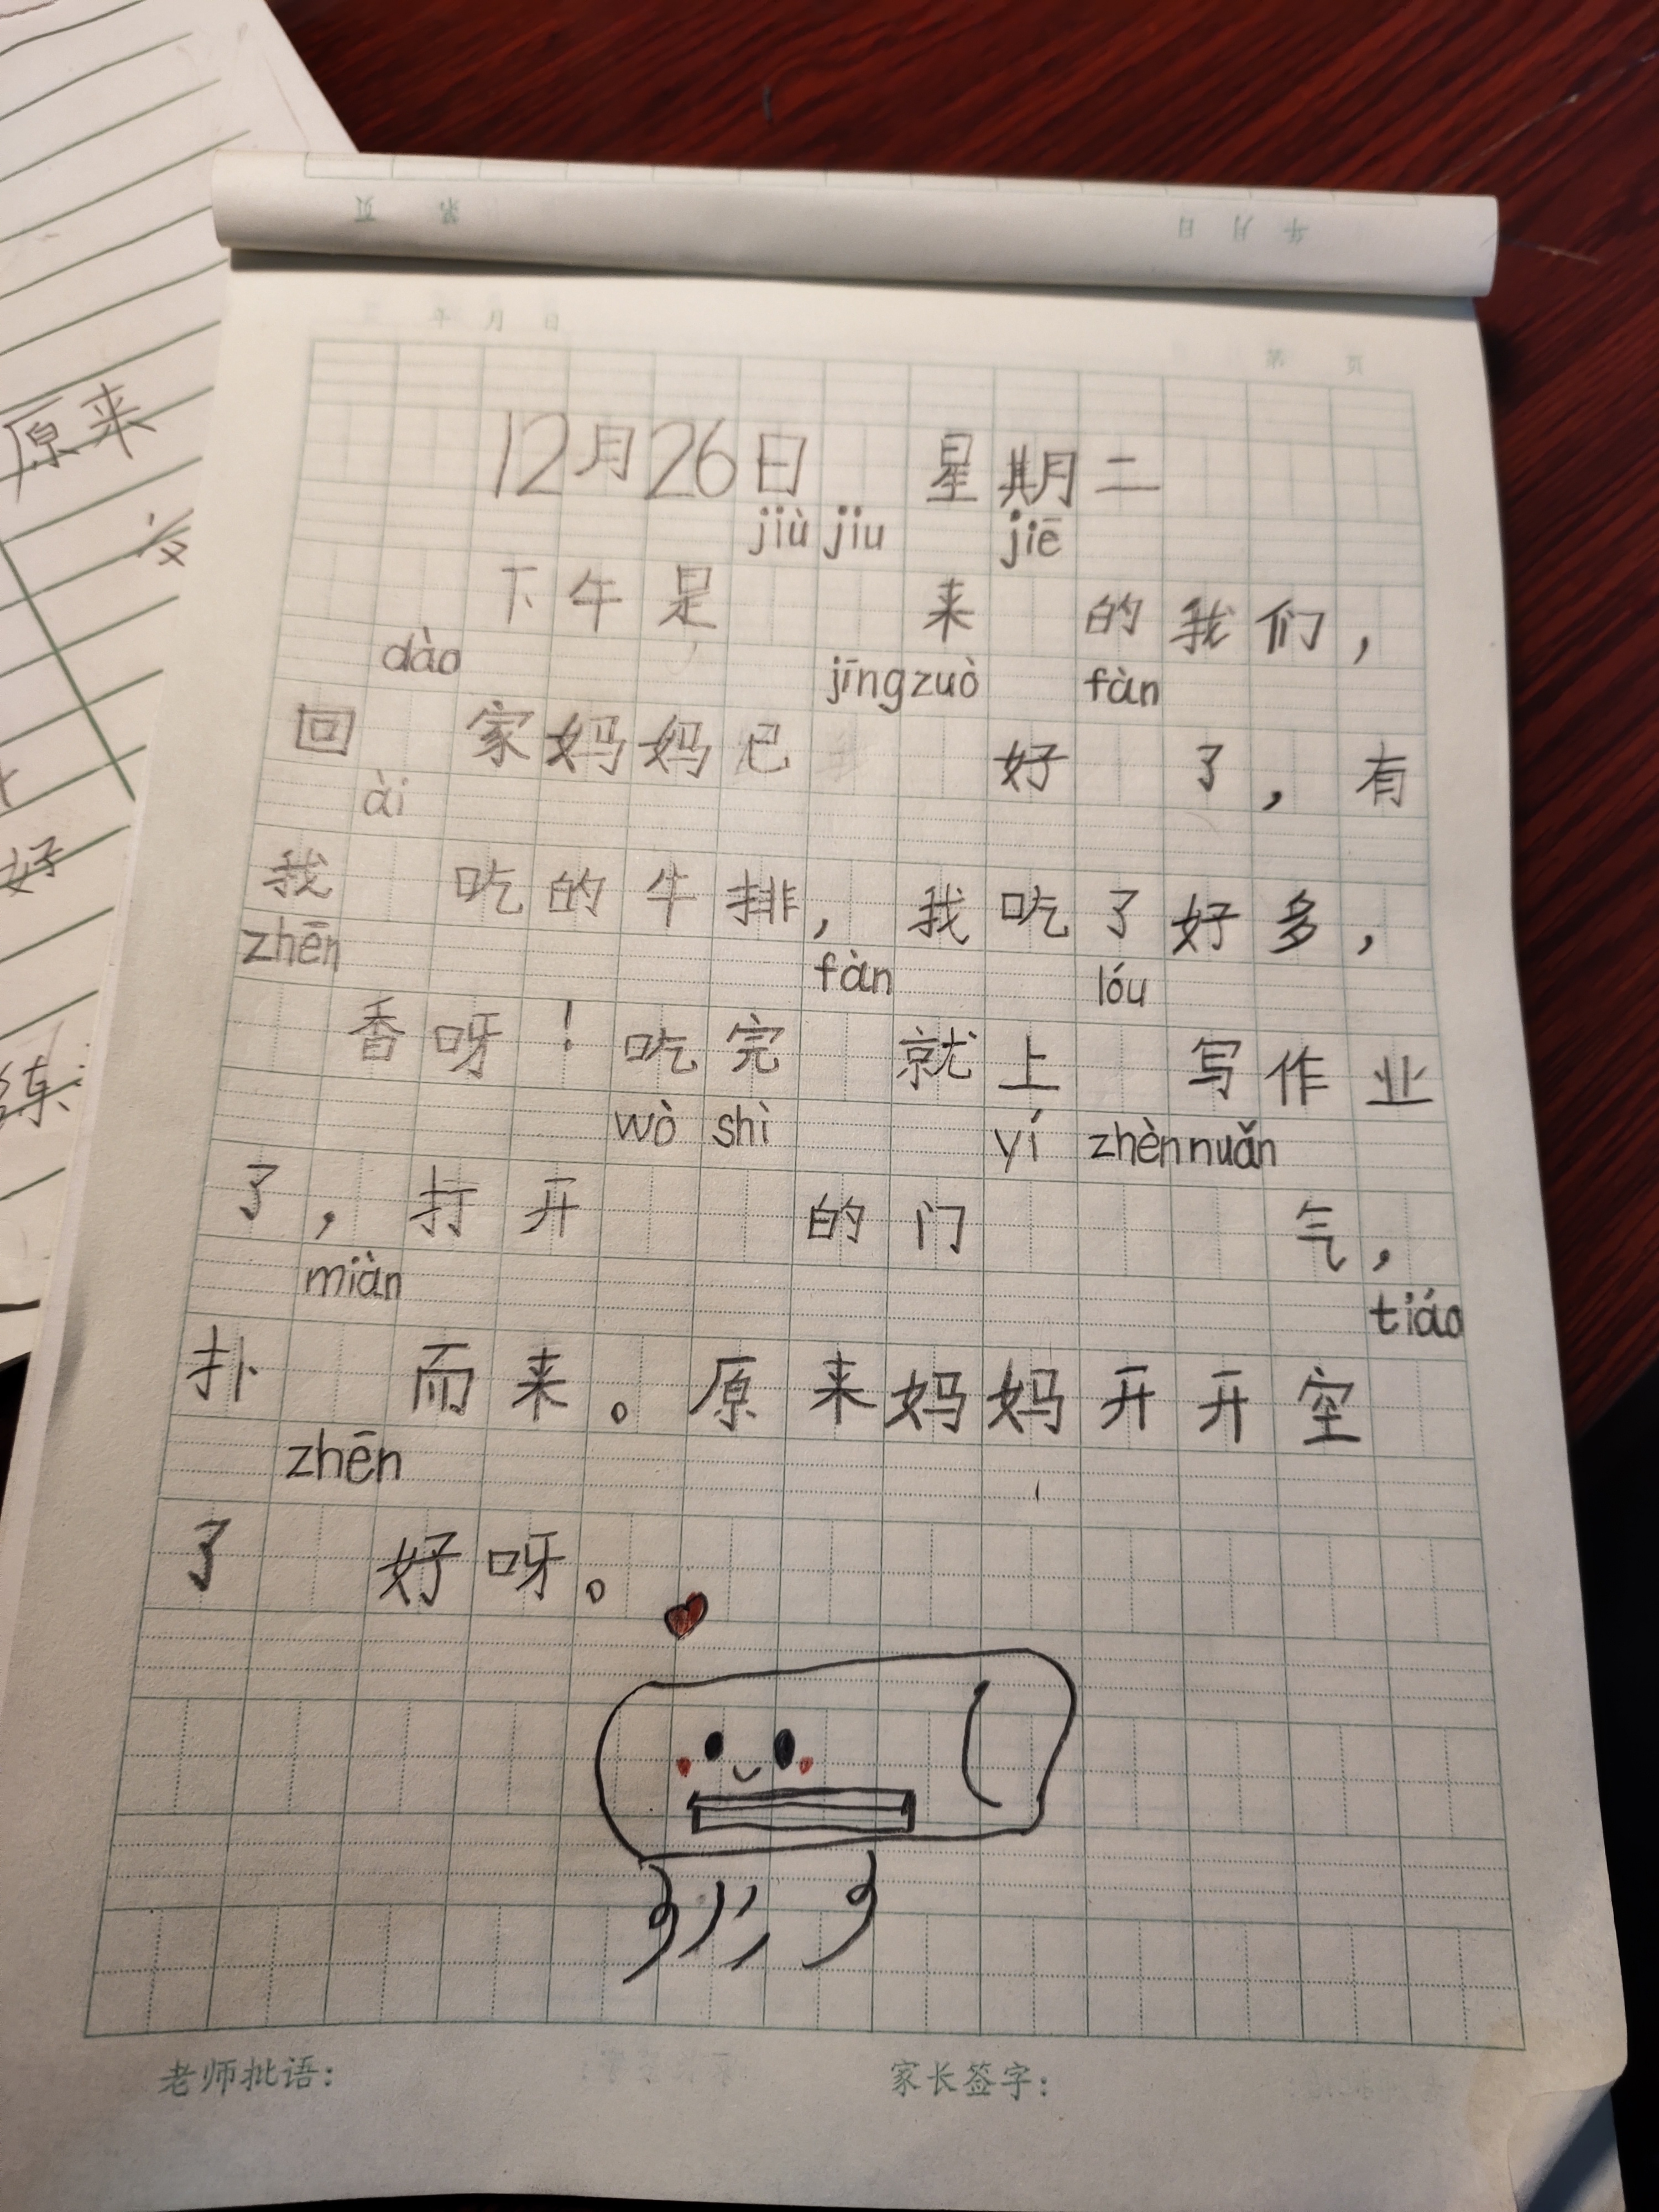 年 月 日
第 页
12月26日 星期二
jiù jiu jiē
下午是 来 的我们，
dào jīng zuò fàn
回 家妈妈已 好 了，有
ài
我 吃的牛排，我吃了好多，
zhēn fàn lóu
香呀！吃完 就上 写作业
wò shì yí zhèn nuǎn
了，打开 的门 气，
miàn tiáo
扑 而来。原来妈妈开开空
zhēn
了 好呀。
老师批语： 家长签字：
原来
好
练